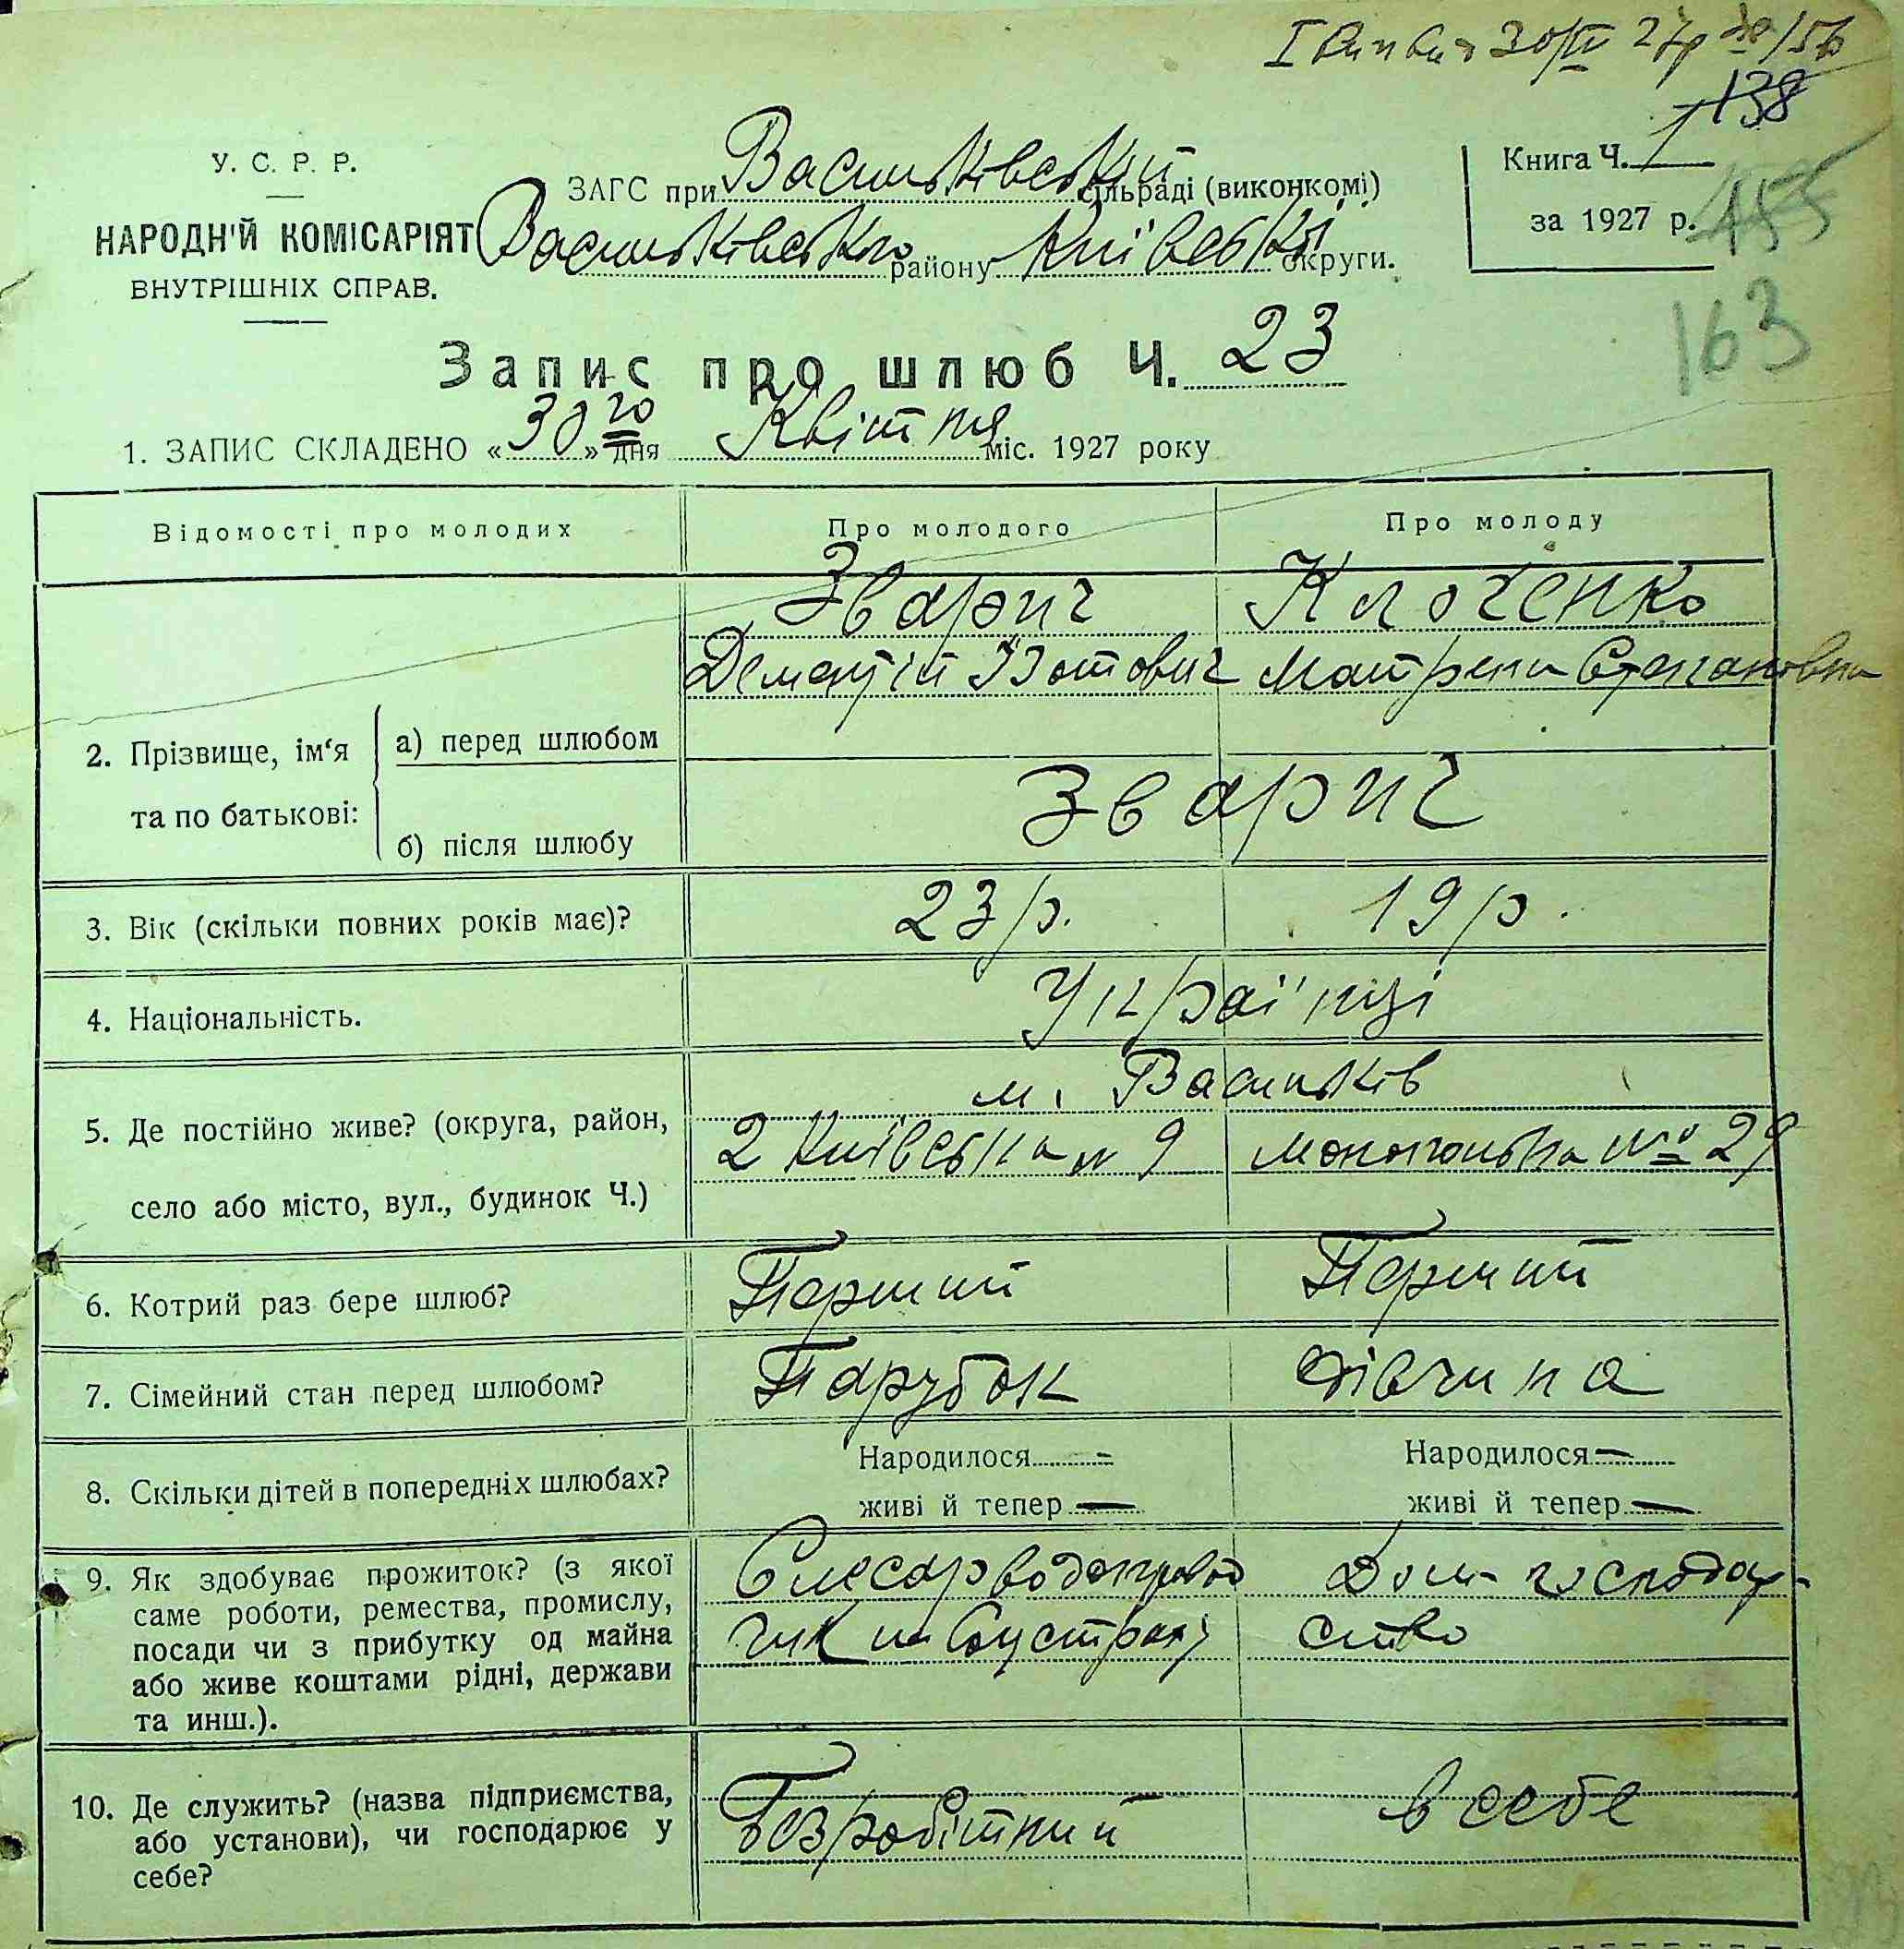 30/IV 27р
138
У. С. Р. Р.
ЗАГС при Васильківській сільраді (виконкомі)
Книга Ч. 1
НАРОДН'Й КОМІСАРІЯТ
Васильківсько району Київської округи.
за 1927 р.
455
ВНУТРІШНІХ СПРАВ.
163
Запис про шлюб Ч. 23
1. ЗАПИС СКЛАДЕНО «30» го дня Квітня міс. 1927 року
Відомості про молодих Про молодого Про молоду
Зварич Клоченко
Дементій Ізотович Матрена Степановна
2. Прізвище, ім‘я та по батькові:
а) перед шлюбом
б) після шлюбу
Зварич
3. Вік (скільки повних років має)? 23 р. 19 р.
4. Національність. Українці
м. Васильків
5. Де постійно живе? (округа, район,
2 Київська № 9 № 29
село або місто, вул., будинок Ч.)
6. Котрий раз бере шлюб? Перший Перший
7. Сімейний стан перед шлюбом? Парубок дівчина
8. Скільки дітей в попередніх шлюбах?
Народилося — Народилося —
живі й тепер — живі й тепер —
9. Як здобуває прожиток? (з якої
саме роботи, ремества, промислу,
посади чи з прибутку од майна
або живе коштами рідні, держави
та инш.).
Слесар водопровод Дом- господар-
чик ство
10. Де служить? (назва підприємства,
або установи), чи господарює у
себе?
Безробітний в себе